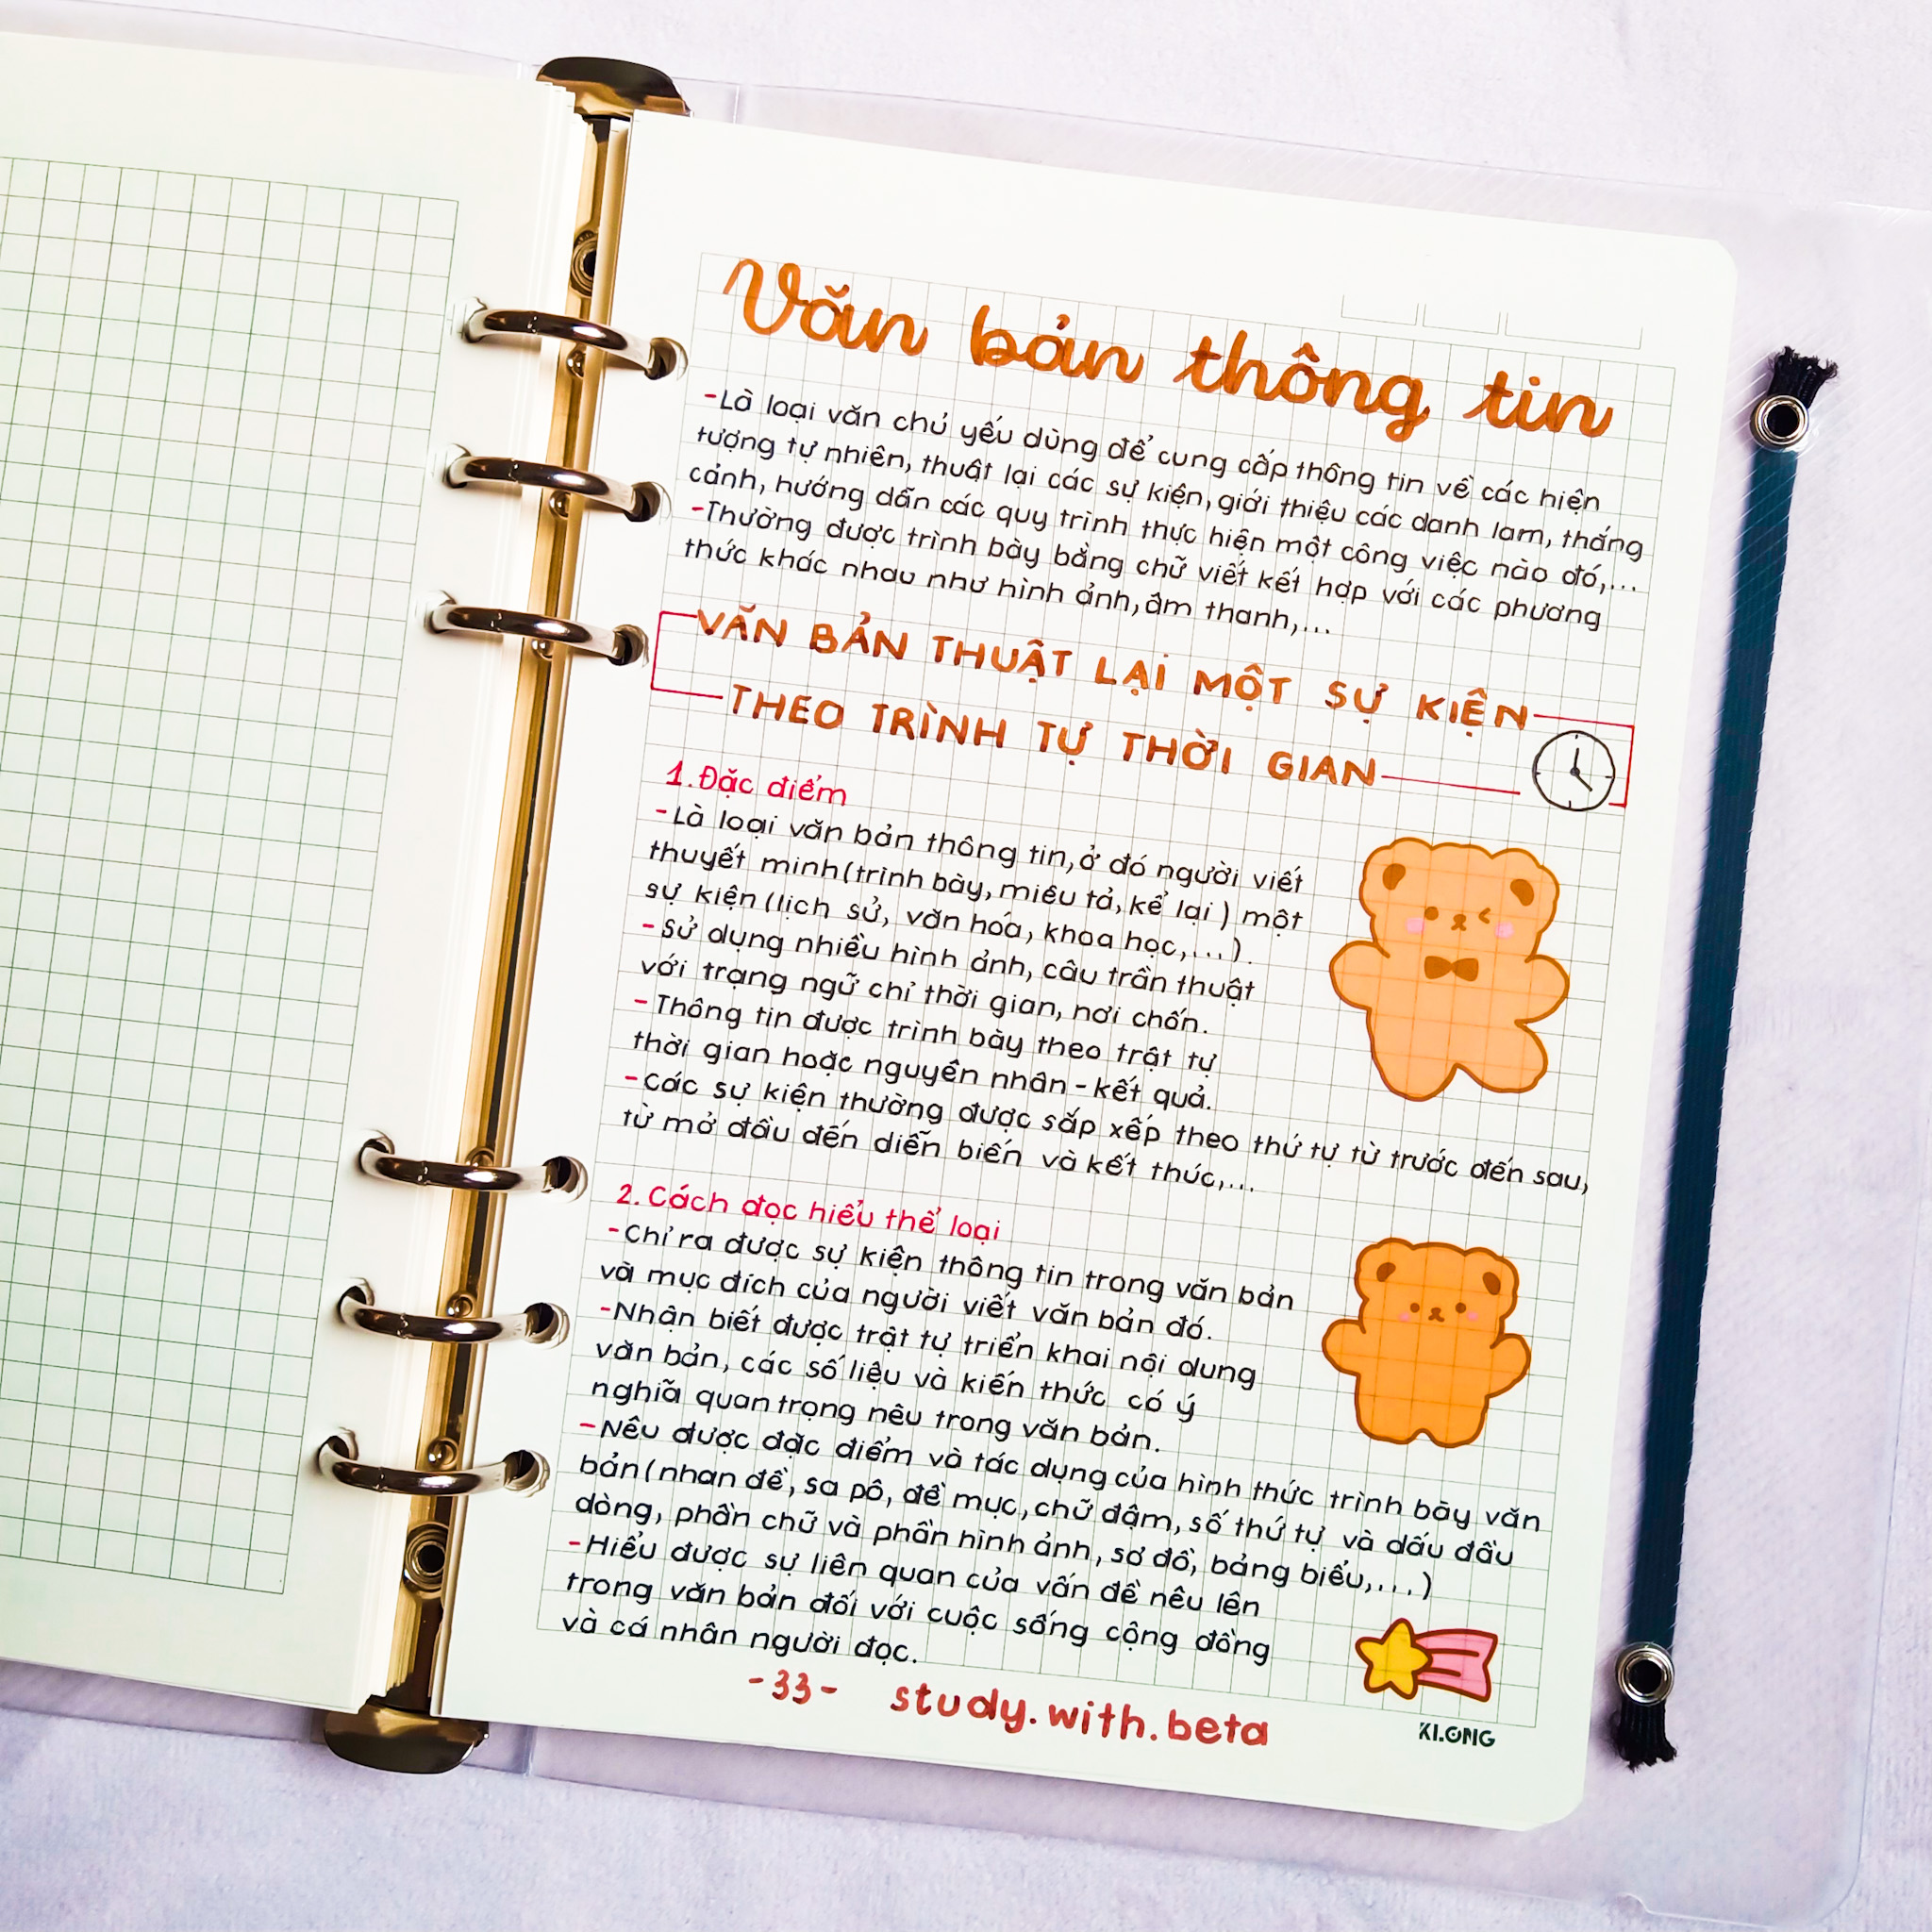 Văn bản thông tin
-Là loại văn chủ yếu dùng để cung cấp thông tin về các hiện
tượng tự nhiên, thuật lại các sự kiện, giới thiệu các danh lam, thắng
cảnh, hướng dẫn các quy trình thực hiện một công việc nào đó,...
-Thường được trình bày bằng chữ viết kết hợp với các phương
thức khác nhau như hình ảnh, âm thanh,...
VĂN BẢN THUẬT LẠI MỘT SỰ KIỆN
THEO TRÌNH TỰ THỜI GIAN
1. Đặc điểm
-Là loại văn bản thông tin, ở đó người viết
thuyết minh (trình bày, miêu tả, kể lại) một
sự kiện (lịch sử, văn hóa, khoa học,...).
-Sử dụng nhiều hình ảnh, câu trần thuật
với trạng ngữ chỉ thời gian, nơi chốn.
-Thông tin được trình bày theo trật tự
thời gian hoặc nguyên nhân - kết quả.
-Các sự kiện thường được sắp xếp theo thứ tự từ trước đến sau,
từ mở đầu đến diễn biến và kết thúc,...
2. Cách đọc hiểu thể loại
-Chỉ ra được sự kiện thông tin trong văn bản
và mục đích của người viết văn bản đó.
-Nhận biết được trật tự triển khai nội dung
văn bản, các số liệu và kiến thức có ý
nghĩa quan trọng nêu trong văn bản.
-Nêu được đặc điểm và tác dụng của hình thức trình bày văn
bản (nhan đề, sa pô, đề mục, chữ đậm, số thứ tự và dấu đầu
dòng, phần chữ và phần hình ảnh, sơ đồ, bảng biểu,...)
-Hiểu được sự liên quan của vấn đề nêu lên
trong văn bản đối với cuộc sống cộng đồng
và cá nhân người đọc.
-33- study.with.beta
KLONG